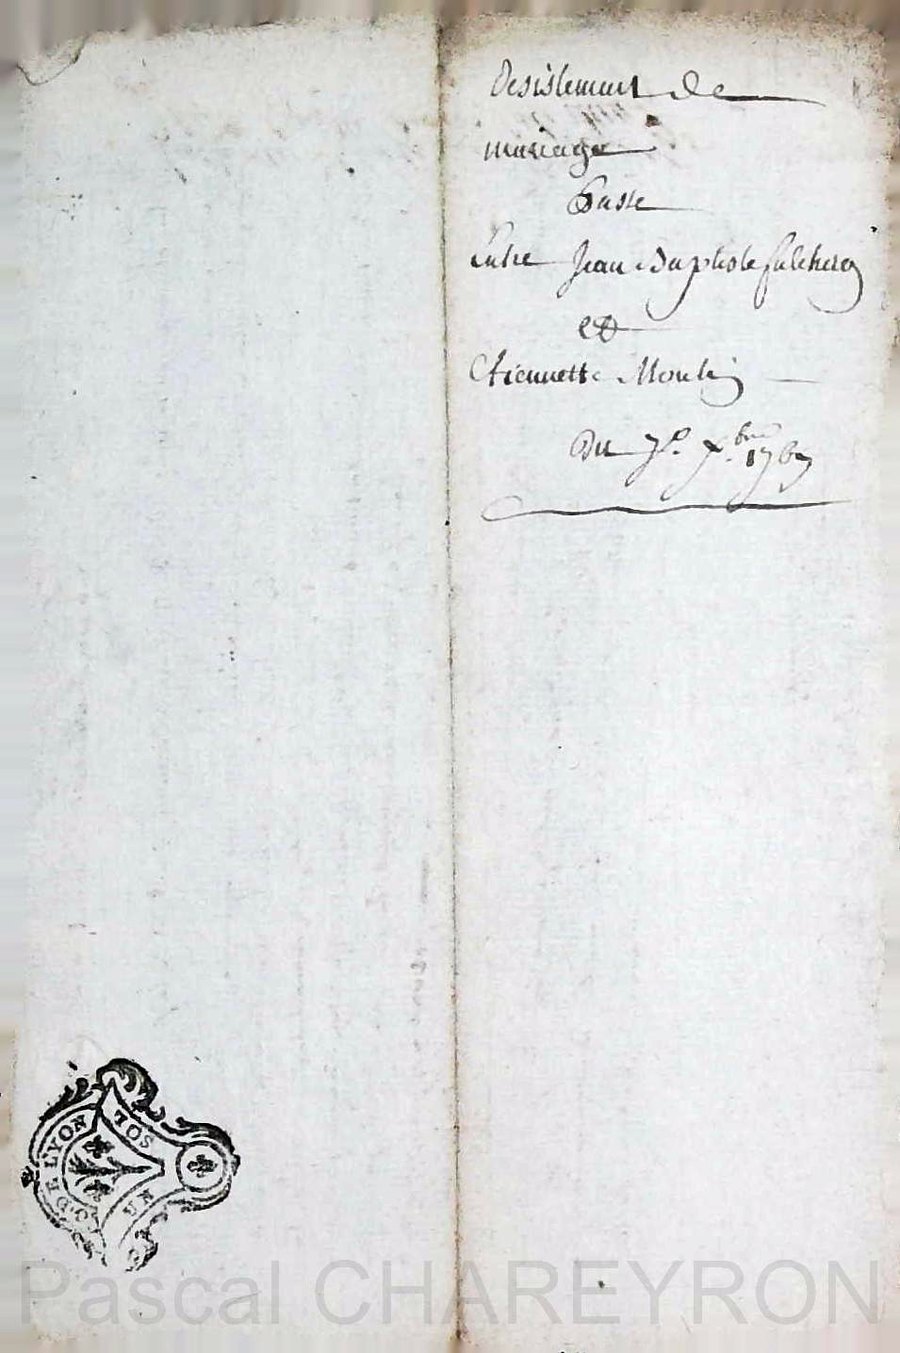 Desistement de
mariage
Passé
Entre Jean Baptiste fulchero
et
Etiennette Moulin
Du 7e. 7.bre 1767
G. DE LYON
SOL
UN
Pascal CHAREYRON